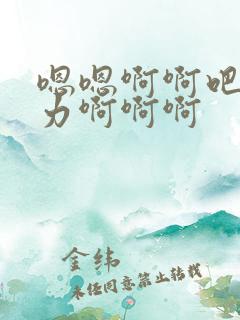 嗯嗯啊啊吧
力啊啊啊
金纬
未经同意禁止转载